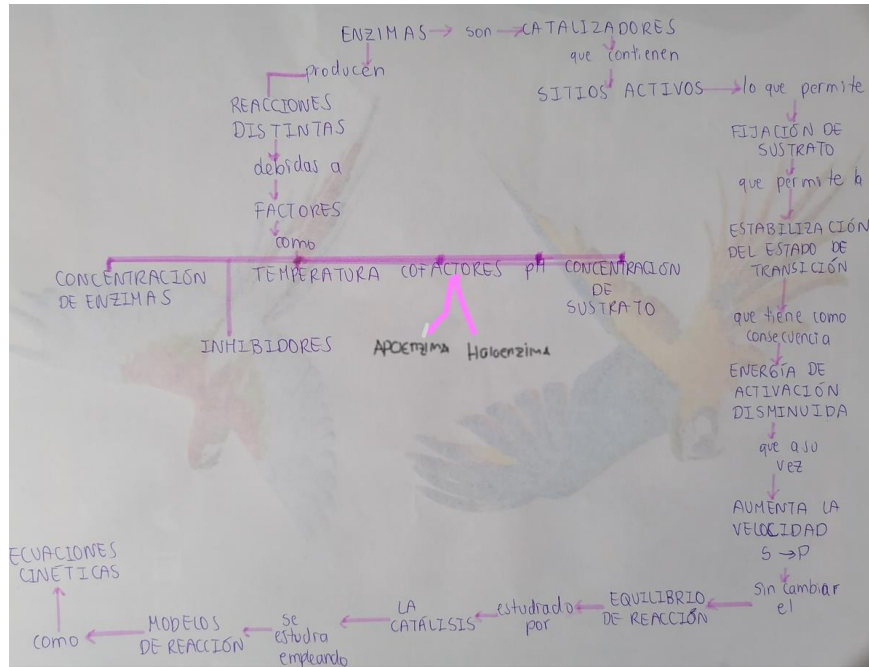 ENZIMAS → son → CATALIZADORES
que contienen
SITIOS ACTIVOS → lo que permite
FIJACIÓN DE
SUSTRATO
que permite la
ESTABILIZACIÓN
DEL ESTADO DE
TRANSICIÓN
que tiene como
consecuencia
ENERGÍA DE
ACTIVACIÓN
DISMINUIDA
que a su
vez
AUMENTA LA
VELOCIDAD
S → P
sin cambiar
el
EQUILIBRIO
DE REACCIÓN
estudrado
por
LA
CATÁLISIS
se
estudra
empleando
MODELOS
DE REACCIÓN
como
ECUACIONES
CINETICAS
producen
REACCIONES
DISTINTAS
debidas a
FACTORES
como
CONCENTRACIÓN
DE ENZIMAS
INHIBIDORES
TEMPERATURA
COFACTORES
APOENZIMA
Haloenzima
pH
CONCENTRACIÓN
DE
SUSTRATO